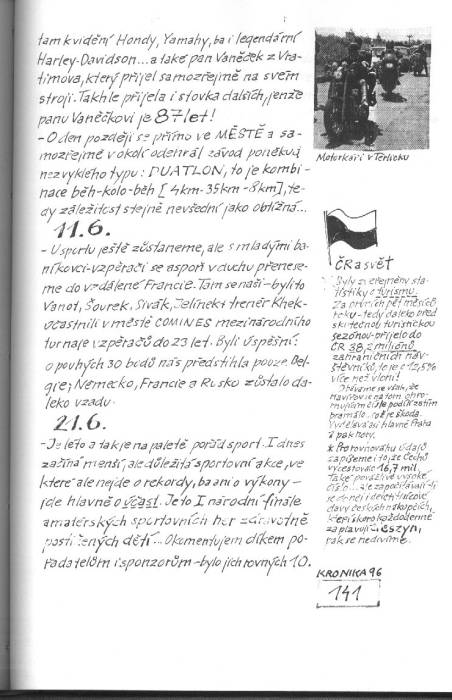 tam k vidění Hondy, Yamahy, ba i legendární
Harley-Davidson...a také pan Vaněček z Vra-
timova, který přijel samozřejmě na svém
stroji. Takhle přijela i stovka dalších, jenže
panu Vaněčkovi je 87 let!
- O den později se přímo ve MĚSTĚ a sa-
mozřejmě v okolí odehrál závod poněkud
nezvyklého typu: DUATLON, to je kombi-
nace běh-kolo-běh [4km-35km-8km], te-
dy záležitost stejně nevšední jako obtížná...
11.6.
- U sportu ještě zůstaneme, ale s mladými ba-
níkovci-vzpěrači se aspoň v duchu přenese-
me do vzdálené Francie. Tam se naši - byli to
Vanot, Šourek, Sivák, Jelínek i trenér Khek-
účastnili v městě COMINES mezinárodního
turnaje vzpěračů do 23 let. Byli úspěšní:
o pouhých 30 bodů nás předstihla pouze Bel-
gie; Německo, Francie a Rusko zůstalo da-
leko vzadu.
21.6.
- Je léto a tak je na paletě pořád sport. I dnes
začíná menší, ale důležitá sportovní akce, ve
které ale nejde o rekordy, ba ani o výkony -
jde hlavně o účast. Je to I. národní finále
amatérských sportovních her zdravotně
postižených dětí... Okomentujem díkem po-
řadatelům i sponzorům - bylo jich rovných 10.
Motorkáři v Těrlicku
ČR a svět
Byly zveřejněny sta-
tistiky o turismu.
Za prvních pět měsíců
roku - tedy daleko před
skutečnou turistickou
sezónou - přijelo do
ČR 38,2 miliónů
zahraničních náv-
štěvníků, to je o 12,5%
více než vloni!
Obáváme se však, že
Havířov je na tom ohro-
mujícím čísle podílí zatím
pramálo...což je škoda.
Vydělává asi hlavně Praha
a pak hory.
* Pro rovnováhu údajů
zapišeme i to, že Čechů
vycestovalo 16,7 mil.
Také považlivě vysoké
číslo... ale započítávají-li
se do něj i dechtivé
davy českých nákupčích,
kteří skoro každodenně
zaplavují Cieszyn,
pak se nedivíme.
KRONIKA 96
141